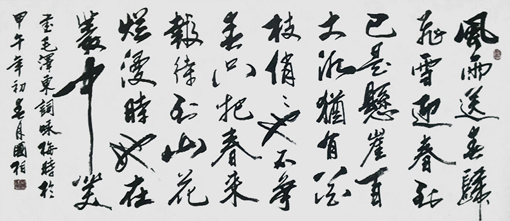 風雨送春歸
飛雪迎春到
已是懸崖百
丈冰猶有花
枝俏俏也不爭
春只把春來
報待到山花
爛漫時她在
叢中笑
毛澤東詞咏梅時於
甲午年初春月國柏